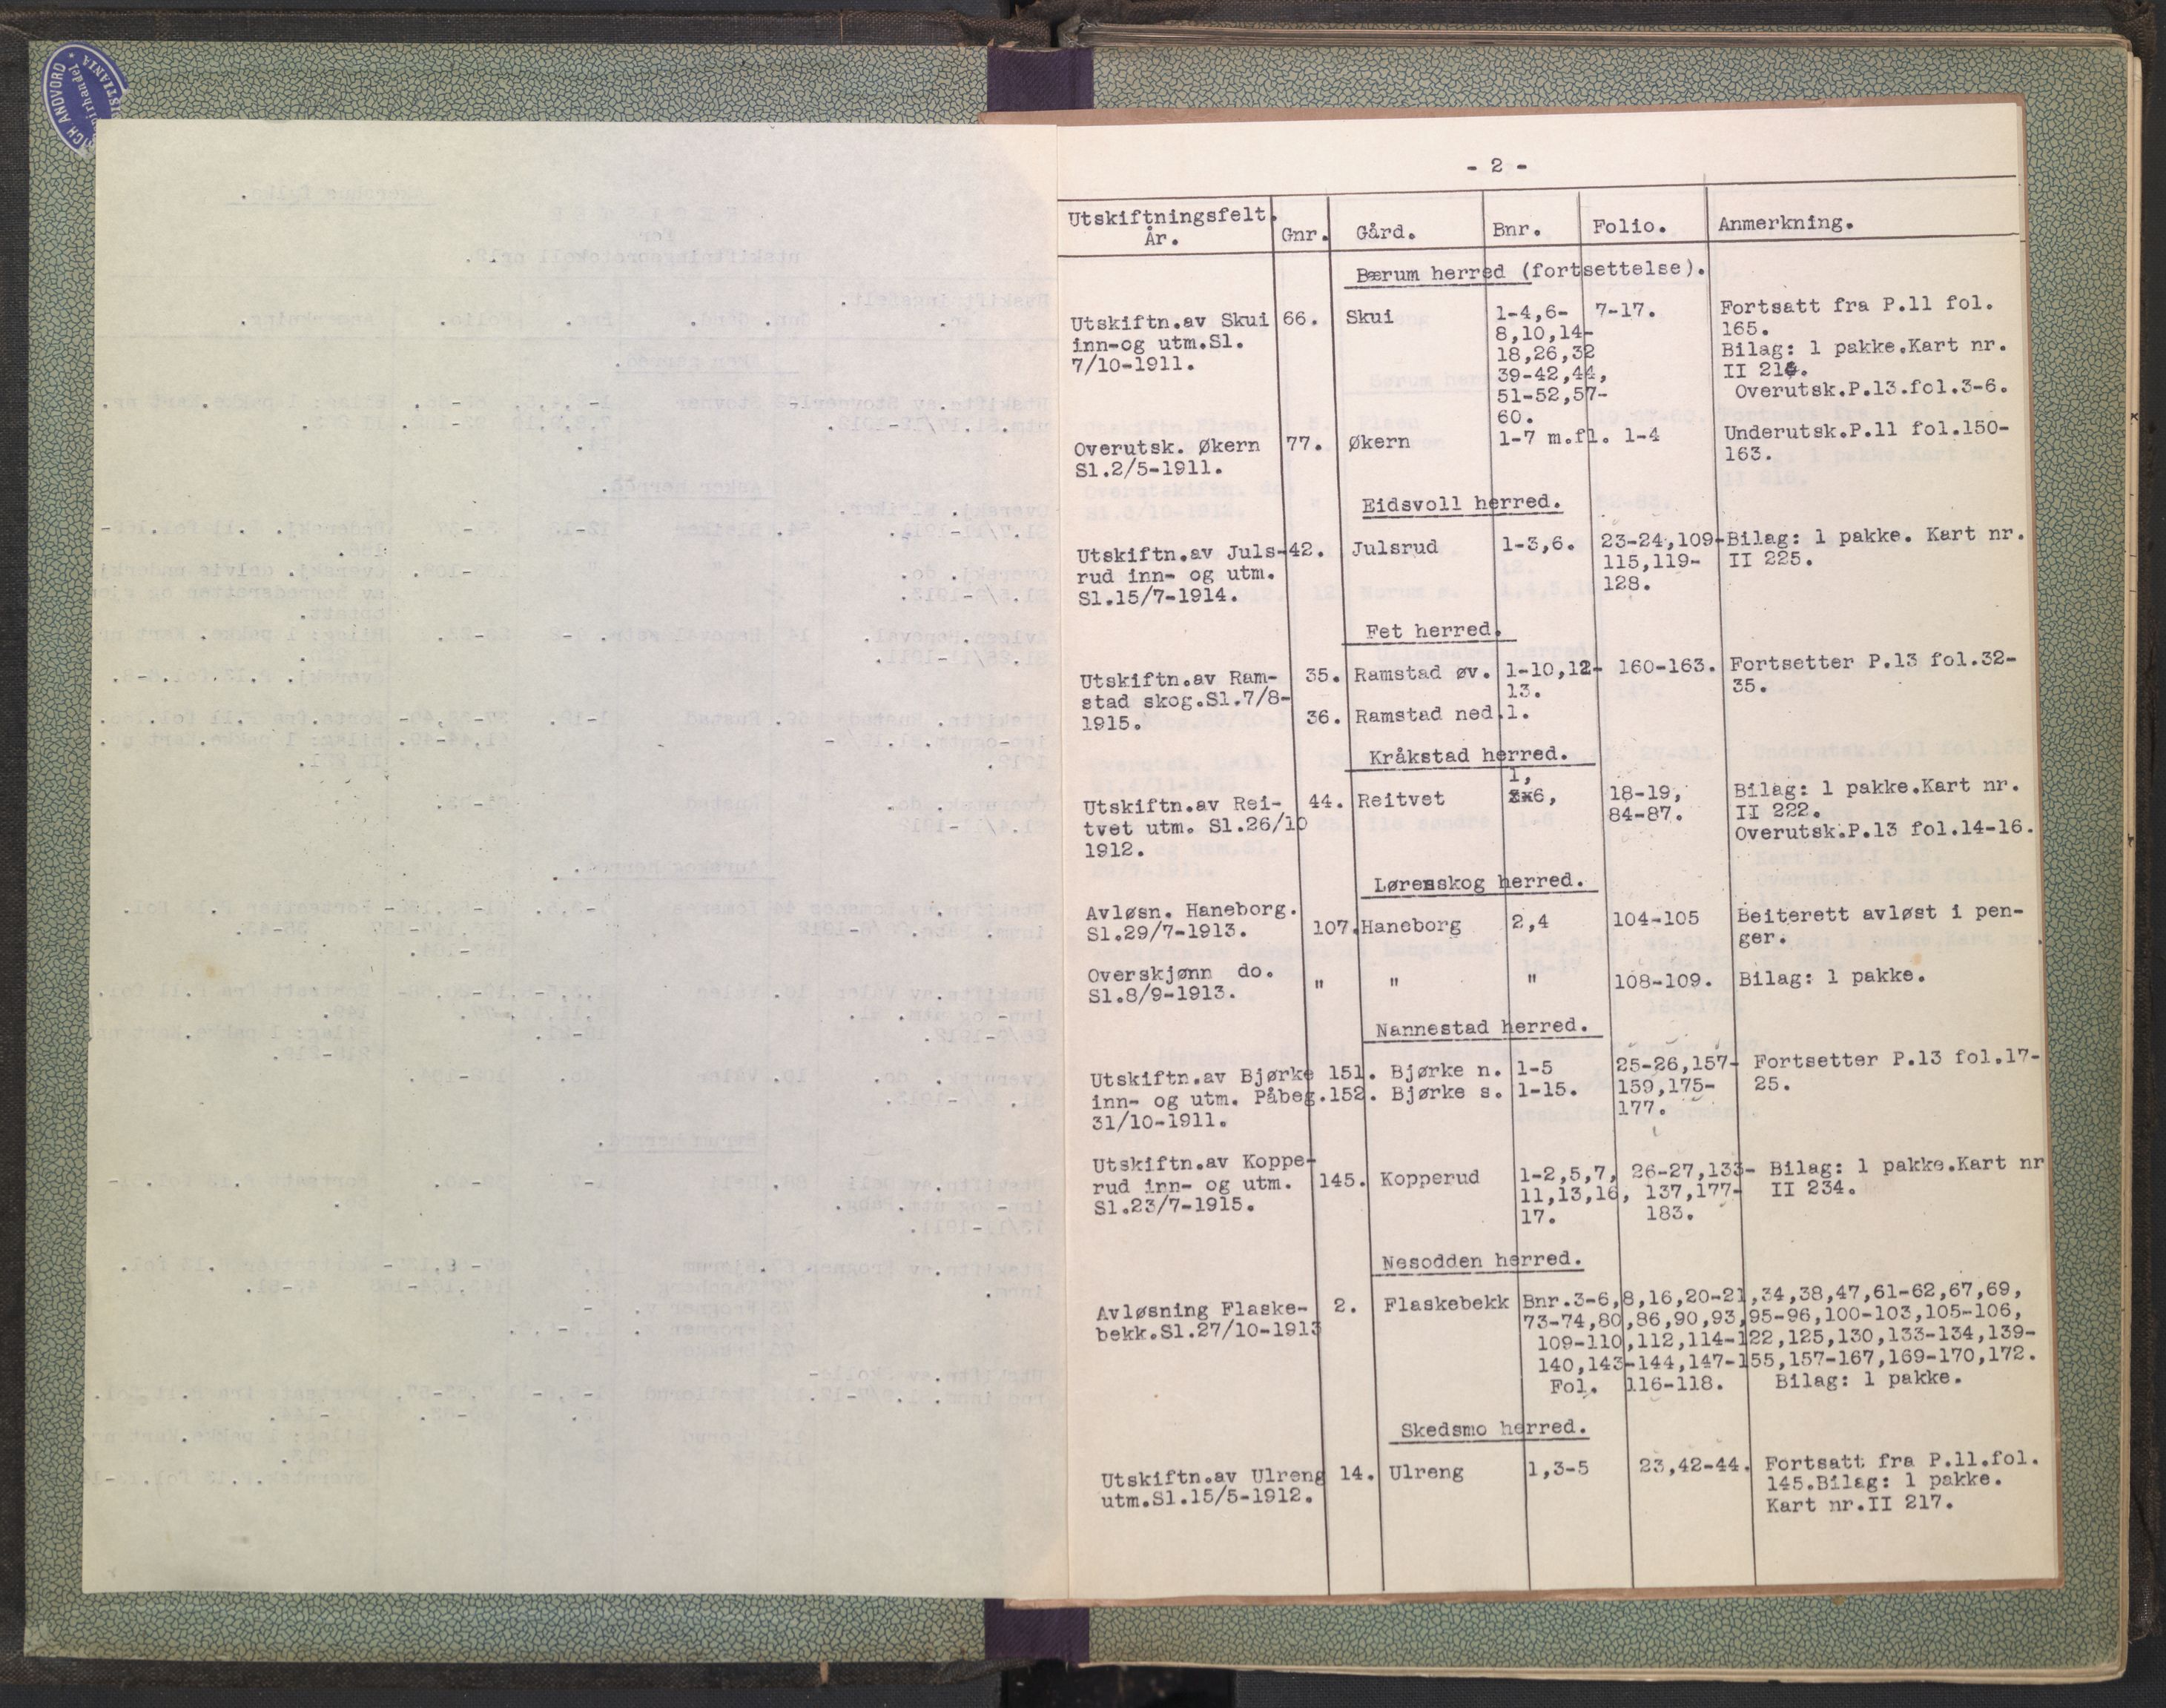 CH ANDVORD
Papirhandel
- 2 -
Utskiftningsfelt. År. Gnr. Gård. Bnr. Folio. Anmerkning.
Bærum herred (fortsettelse).
Utskiftn.av Skui 66. Skui 1-4,6- 7-17. Fortsatt fra P.11 fol.
inn-og utm.Sl. 8,10,14- 165.
7/10-1911. 18,26,32 Bilag: 1 pakke.Kart nr.
39-42,44, II
51-52,57- Overutsk.P.13.fol.3-6.
60.
Overutsk. Økern 77. Økern 1-7 m.fl. 1-4 Underutsk.P.11 fol.150-
Sl.2/5-1911. 163.
Eidsvoll herred.
Utskiftn.av Juls- 42. Julsrud 1-3,6. 23-24,109- Bilag: 1 pakke. Kart nr.
rud inn- og utm. 115,119- II 225.
Sl.15/7-1914. 128.
Fet herred.
Utskiftn.av Ram- 35. Ramstad øv. 1-10,12- 160-163. Fortsetter P.13 fol.32-
stad skog.Sl.7/8- 13. 35.
1915. 36. Ramstad ned. 1.
Kråkstad herred.
1,
Utskiftn.av Rei- 44. Reitvet 6, 18-19, Bilag: 1 pakke.Kart nr.
tvet utm. Sl.26/10 84-87. II 222.
1912. Overutsk.P.13 fol.14-16.
Lørenskog herred.
Avløsn. Haneborg. 107. Haneborg 2,4 104-105 Beiterett avløst i pen-
Sl.29/7-1913. ger.
Overskjønn do. " " " 108-109. Bilag: 1 pakke.
Sl.8/9-1913.
Nannestad herred.
Utskiftn.av Bjørke 151. Bjørke n. 1-5 25-26,157- Fortsetter P.13 fol.17-
inn- og utm. Påbeg. 152. Bjørke s. 1-15. 159,175- 25.
31/10-1911. 177.
Utskiftn.av Koppe- 145. Kopperud 1-2,5,7, 26-27,133- Bilag: 1 pakke.Kart nr
rud inn- og utm. 11,13,16, 137,177- II 234.
Sl.23/7-1915. 17. 183.
Nesodden herred.
Avløsning Flaske- 2. Flaskebekk Bnr.3-6,8,16,20-21,34,38,47,61-62,67,69,
bekk.Sl.27/10-1913 73-74,80,86,90,93,95-96,100-103,105-106,
109-110,112,114-122,125,130,133-134,139-
140,143-144,147-155,157-167,169-170,172.
Fol. 116-118. Bilag: 1 pakke.
Skedsmo herred.
Utskiftn.av Ulreng 14. Ulreng 1,3-5 23,42-44. Fortsatt fra P.11.fol.
utm.Sl.15/5-1912. 145.Bilag: 1 pakke.
Kart nr.II 217.